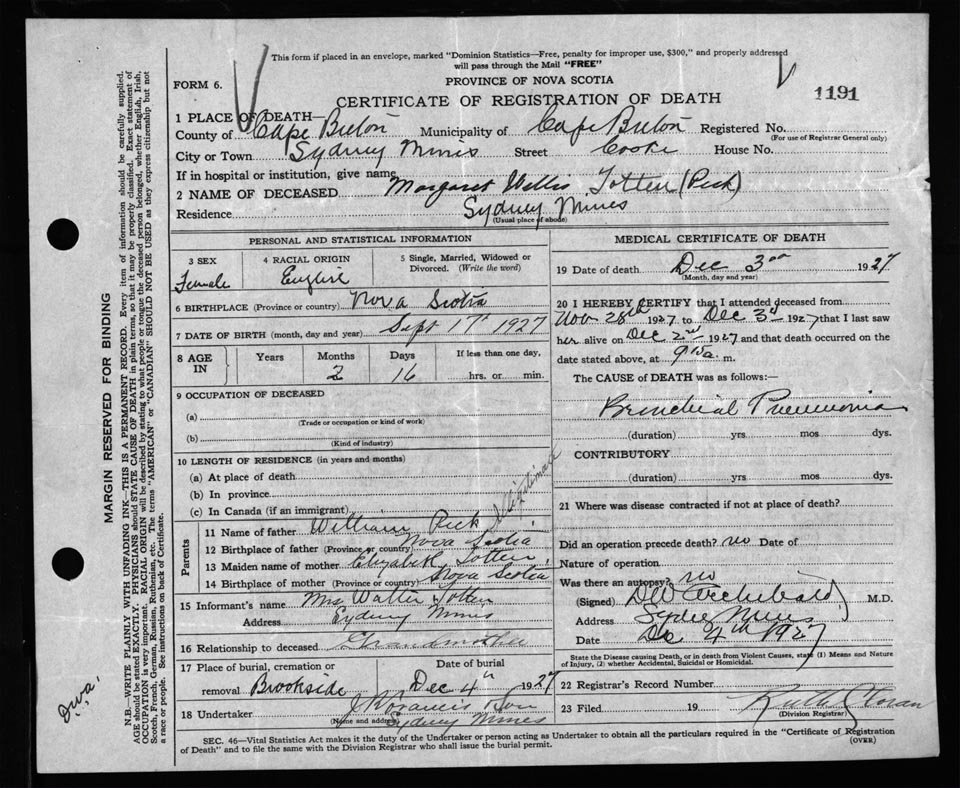 This form if placed in an envelope, marked "Dominion Statistics—Free, penalty for improper use, $300," and properly addressed
will pass through the Mail "FREE"
FORM 6.
PROVINCE OF NOVA SCOTIA
CERTIFICATE OF REGISTRATION OF DEATH
1191
1 PLACE OF DEATH—
County of Cape Breton Municipality of Cape Breton Registered No.
(For use of Registrar General only)
City or Town Sydney Mines Street Cooke House No.
If in hospital or institution, give name
2 NAME OF DECEASED Margaret Willis Totten (Peck)
Residence Sydney Mines
(Usual place of abode)
PERSONAL AND STATISTICAL INFORMATION
3 SEX 4 RACIAL ORIGIN 5 Single, Married, Widowed or
Divorced. (Write the word)
Female English
6 BIRTHPLACE (Province or country) Nova Scotia
7 DATE OF BIRTH (month, day and year) Sept 17th 1927
8 AGE IN Years Months Days If less than one day,
2 16 hrs. or min.
9 OCCUPATION OF DECEASED
(a)
(Trade or occupation or kind of work)
(b)
(Kind of industry)
10 LENGTH OF RESIDENCE (in years and months)
(a) At place of death
(b) In province
(c) In Canada (if an immigrant)
Illigitimate
Parents
11 Name of father William Peck
12 Birthplace of father (Province or country) Nova Scotia
13 Maiden name of mother Elizabeth Totten
14 Birthplace of mother (Province or country) Nova Scotia
15 Informant's name Mrs Walter Totten
Address Sydney Mines
16 Relationship to deceased Grandmother
17 Place of burial, cremation or Date of burial
removal Brookside Dec 4th 1927
18 Undertaker
(Name and address) Sydney Mines
MEDICAL CERTIFICATE OF DEATH
19 Date of death Dec 3rd 1927
(Month, day and year)
20 I HEREBY CERTIFY that I attended deceased from
Nov 28th 1927 to Dec 3rd 1927 that I last saw
her alive on Dec 2nd 1927 and that death occurred on the
date stated above, at 9 15 a. m.
The CAUSE of DEATH was as follows:—
Bronchial Pneumonia
(duration) yrs mos dys.
CONTRIBUTORY
(duration) yrs mos dys.
21 Where was disease contracted if not at place of death?
Did an operation precede death? no Date of
Nature of operation
Was there an autopsy? no
(Signed) DW Archibald M.D.
Address Sydney Mines
Date Dec 4th 1927
State the Disease causing Death, or in death from Violent Causes, state (1) Means and Nature
of Injury, (2) whether Accidental, Suicidal or Homicidal.
22 Registrar's Record Number
23 Filed 19
(Division Registrar)
SEC. 46—Vital Statistics Act makes it the duty of the Undertaker or person acting as Undertaker to obtain all the particulars required in the "Certificate of Registration
of Death" and to file the same with the Division Registrar who shall issue the burial permit.
(OVER)
MARGIN RESERVED FOR BINDING
N.B.—WRITE PLAINLY WITH UNFADING INK—THIS IS A PERMANENT RECORD. Every item of information should be carefully supplied.
AGE should be stated EXACTLY. PHYSICIANS should STATE CAUSE OF DEATH in plain terms, so that it may be properly classified. Exact statement of
OCCUPATION is very important. RACIAL ORIGIN will be described by stating to what people or tongue the deceased person belonged, whether English, Irish,
Scotch, French, German, Russian, Ruthenian, etc. The terms "AMERICAN" or "CANADIAN" SHOULD NOT BE USED as they express citizenship but not
a race or people. See instructions on back of Certificate.